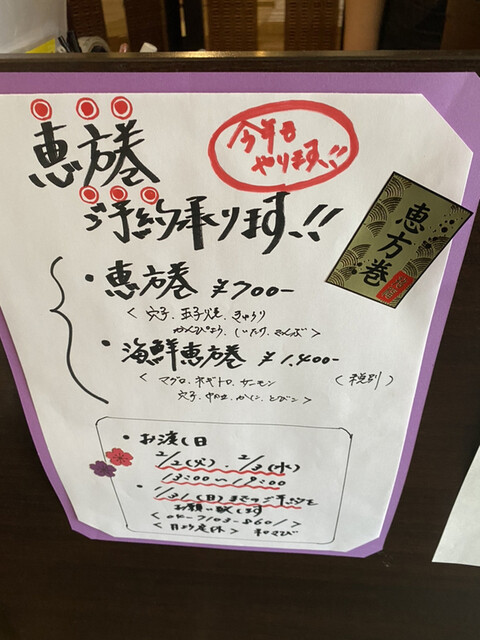 今年も
やります!!
恵方巻
ご予約承ります!!
恵方巻
・恵方巻 ¥700-
＜穴子、玉子焼、きゅうり
かんぴょう、しいたけ、でんぶ＞
・海鮮恵方巻 ¥1,400-
＜マグロ、ネギトロ、サーモン
穴子、中巨、かに、とびこ＞
（税別）
・お渡し日
2/2(火)・2/3(水)
13:00〜19:00
・1/31(日)までのご予約を
お願い致します
＜04-7103-8601＞
＜月より定休＞